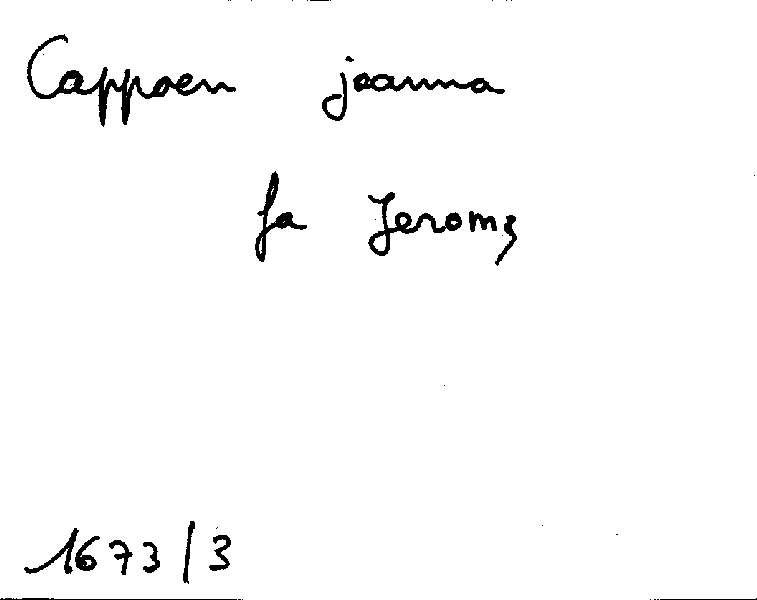 Cappoen joanna
fa Jeroms
1673/3